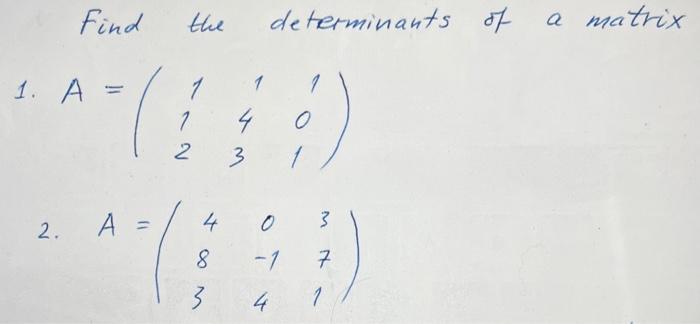 Find the determinants of a matrix
1. A = ( 1 1 1
1 4 0
2 3 1 )
2. A = ( 4 0 3
8 -1 7
3 4 1 )